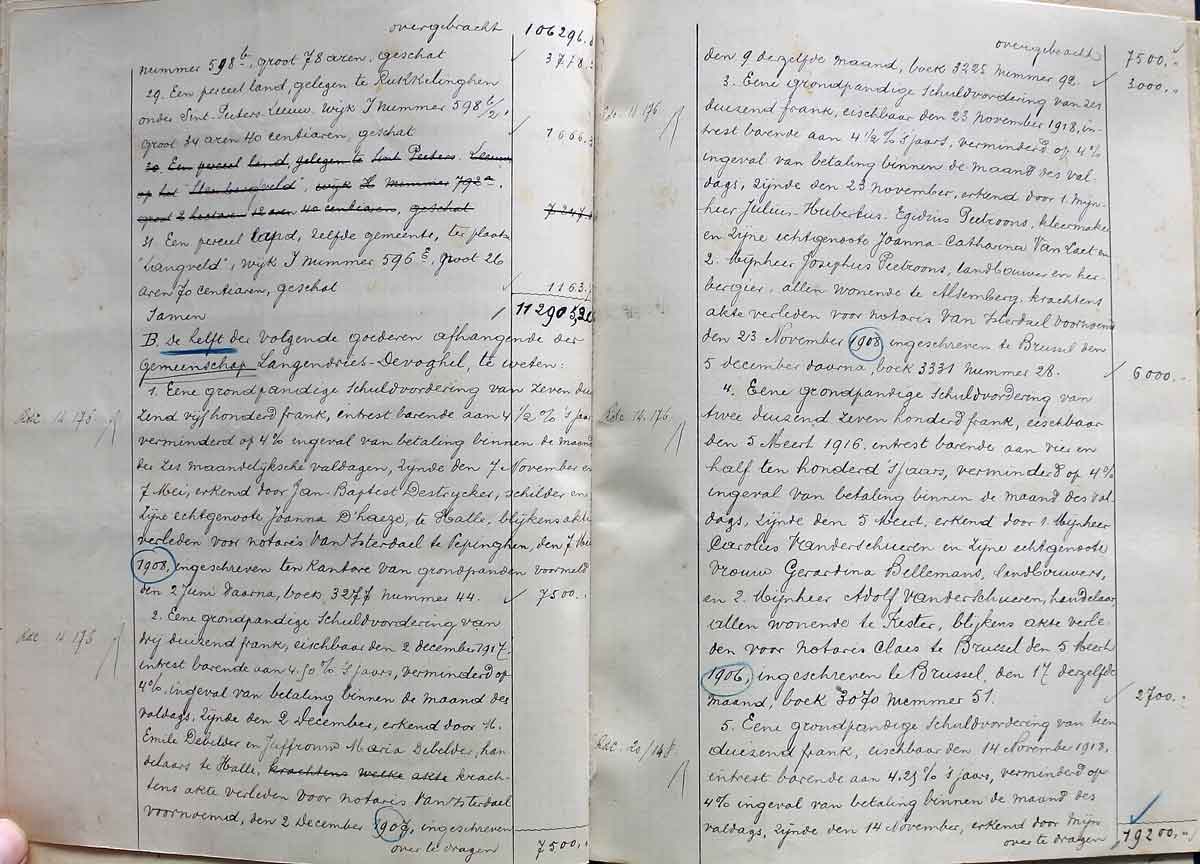 overgebracht 106296.
nummer 598b, groot 78 aren, geschat 3778.
29. Een perceel land, gelegen te Rukkelinghen
onder Sint. Peeters. Leeuw. Wijk I nummer 598 c/2,
groot 34 aren 40 centiaren, geschat 1666.
30. Een perceel land, gelegen te Sint Peeters. Leeuw
op het Steenbergveld", wijk H nummer 792a,
groot 2 hectaren 12 aren 40 centiaren, geschat 7247.
31. Een perceel land, zelfde gemeente, te plaats
"Langveld", wijk I nummer 596, groot 26
aren 70 centiaren, geschat 1163.
Samen 112905,20
B. De helft der volgende goederen afhangende der
Gemeenschap Langendries-Devoghel, te weten:
1. Eene grondpandige Schuldvordering van zeven dui
zend vijf honderd frank, intrest barende aan 4 1/2 % 's jaars
Rac 14 175
verminderd op 4% ingeval van betaling binnen de maand
der zes maandelijksche valdagen, zijnde den 7 November en
7 Mei, erkend door Jan-Baptist Destrycker, schilder en
zijne echtgenoote Joanna D'haeze, te Halle, blijkens akte
verleden voor notaris Van Isterdael te Pepinghen, den 7 Mei
1908, ingeschreven ten kantore van grondpanden voormeld
den 2 Juni daarna, boek 3277 nummer 44. 7500.
2. Eene grondpandige Schuldvordering van
Rac 14 175
drij duizend frank, eischbaar den 2 december 1917,
intrest barende aan 4.50 % 's jaars, verminderd op
4%, ingeval van betaling binnen de maand des
valdags, zijnde den 2 December, erkend door M.
Emile Debelder en Juffrouw Maria Debelder, han-
delaars te Halle, krachtens welke akte krach-
tens akte verleden voor notaris Van Isterdael
voornoemd, den 2 December 1907, ingeschreven
over te dragen 7500.
overgebracht 7500,
den 9 dezelfde maand, boek 3225 nummer 92. 3000,
3. Eene grondpandige Schuldvordering van zes
14 176.
duizend frank, eischbaar den 23 november 1918, in-
trest barende aan 4 1/2 % 's jaars, verminderd op 4%
ingeval van betaling binnen de maand des val-
dags, zijnde den 23 November, erkend door 1. Mijn-
heer Julius-Hubertus-Egidius Peetroons, kleermaker
en zijne echtgenoote Joanna-Catharina Van Laet en
2. Mijnheer Josephus Peetroons, landbouwer en her
bergier, allen wonende te Alsemberg, krachtens
akte verleden voor notaris Van Isterdael voornoemd
den 23 November 1908 ingeschreven te Brussel den
5 december daarna, boek 3331 nummer 28. 6000.
4. Eene grondpandige Schuldvordering van
Rac 14.176.
twee duizend zeven honderd frank, eischbaar
den 5 Meert 1916. intrest barende aan vier en
half ten honderd 's jaars, verminderd op 4%
ingeval van betaling binnen de maand des val-
dags, zijnde den 5 Meert, erkend door 1. Mijnheer
Carolus Vanderschueren en zijne echtgenoote
vrouw Gerardina Bellemans, landbouwers,
en 2. Mijnheer Adolf Vanderschueren, handelaar
allen wonende te Kester, blijkens akte verle
den voor notaris Claes te Brussel den 5 Meert
1906, ingeschreven te Brussel, den 17 derzelfde
maand, boek 3070 nummer 51. 2700.
5. Eene grondpandige Schuldvordering van tien
Rac. 20/148.
duizend frank, eischbaar den 14 November 1918,
intrest barende aan 4.25 % 's jaars, verminderd op
4% ingeval van betaling binnen de maand des
valdags, zijnde den 14 November, erkend door Mijn
over te dragen 19200,